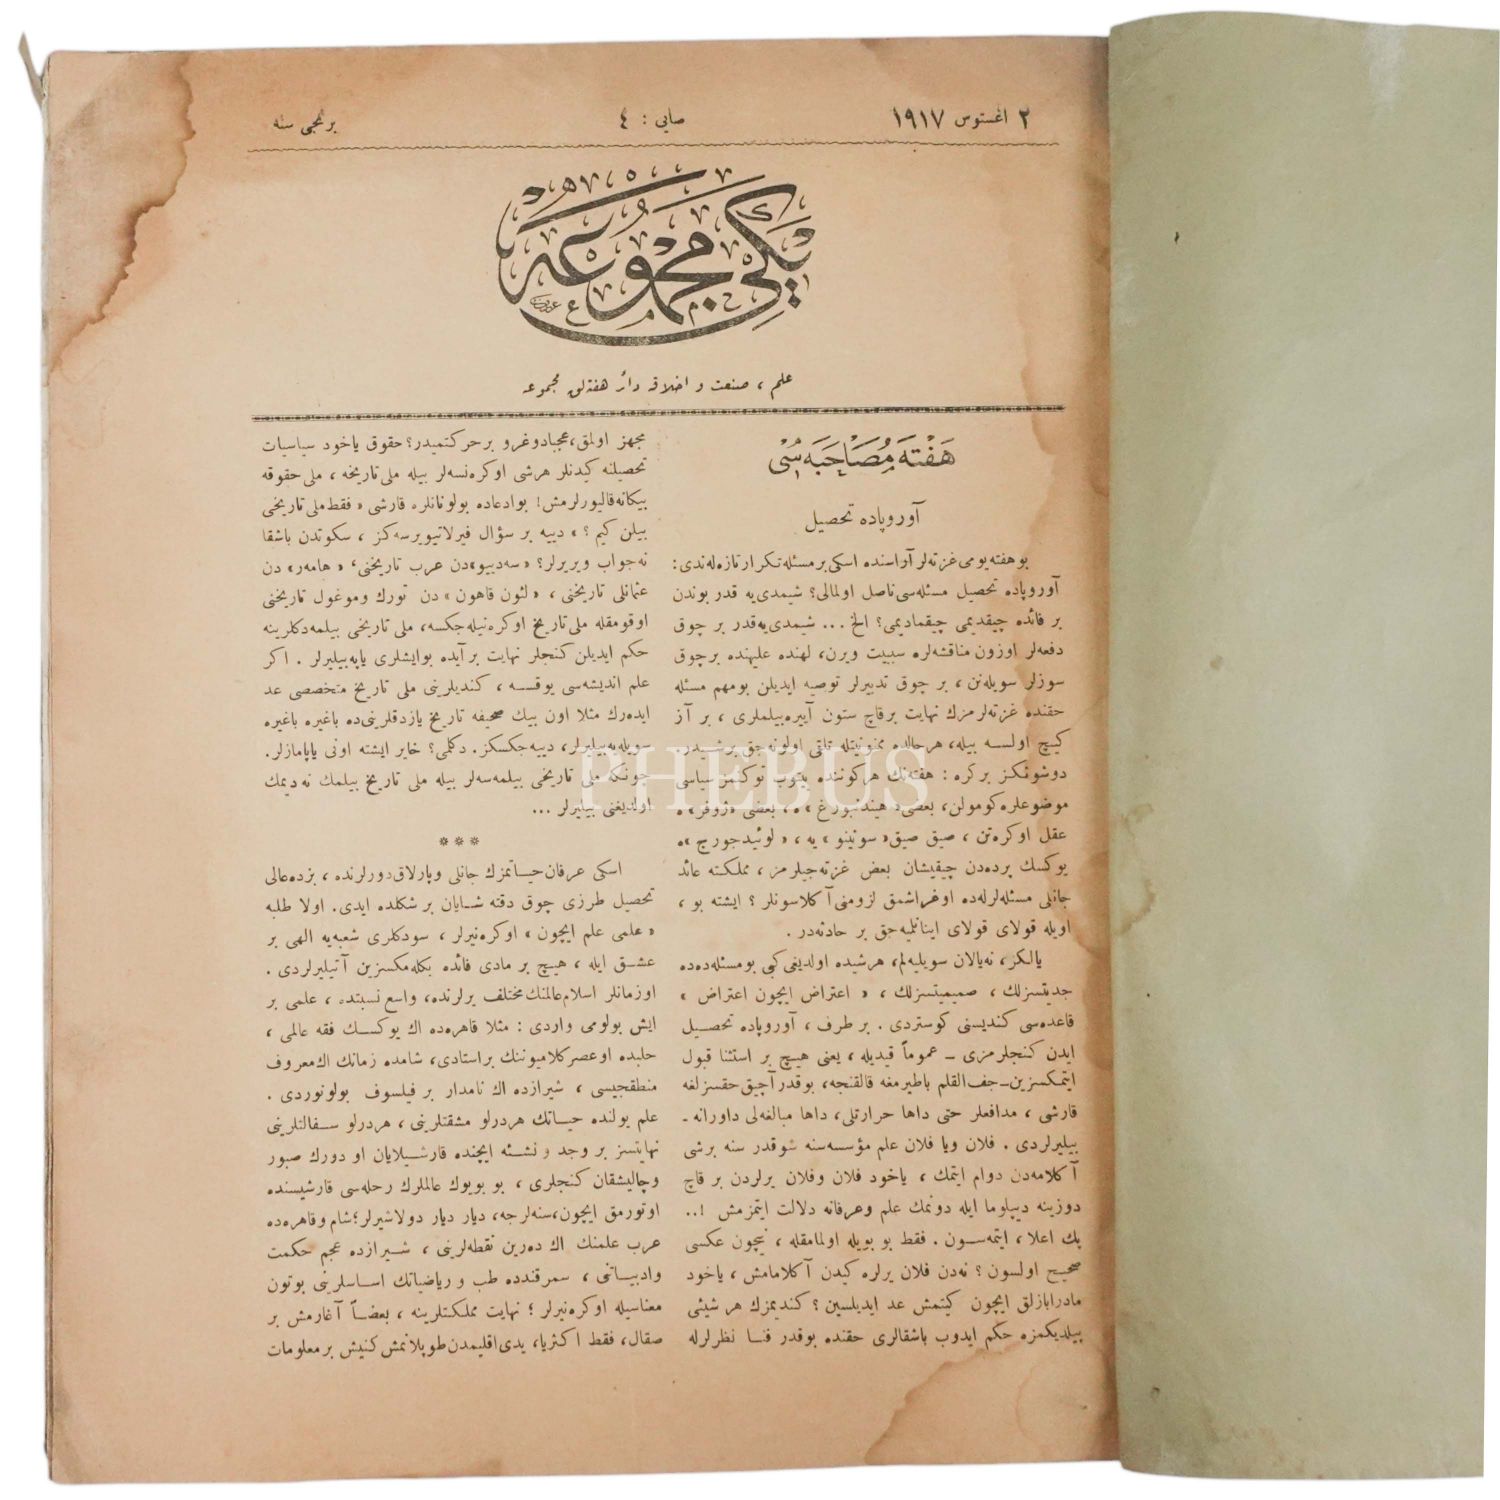 ٢ اغستوس ١٩١٧
صایی : ٤
برنجی سنه
یکی مجموعه
علم ، صنعت و اخلاقه دائر هفته‌لق مجموعه
هفته مصاحبه‌سی
آوروپاده تحصیل
بو هفته یومی غزته‌لر آراسنده اسکی بر مسئله تکرار تازه‌له‌ندی :
آوروپاده تحصیل مسئله‌سی ناصل اولمالی؟ شیمدی‌یه قدر بوندن
بر فائده چیقدیمی چیقمادیمی؟ الخ ... شیمدی‌یه قدر بر چوق
دفعه‌لر اوزون مناقشه‌لره سببیت ویرن، لهنده علیهنده بر چوق
سوزلر سویله‌نن ، بر چوق تدبیرلر توصیه ایدیلن بو مهم مسئله
حقنده غزته‌لرمزك نهایت بر قاچ ستون آییره‌بیلملری ، بر آز
کیچ اولسه بیله، هر حالده ممنونیتله تلقی اولونه‌جق بر شیدر.
دوشونکز بر کره : هفته‌نك هر کوننده بیتوب توکنمز سیاسی
موضوعلره کومولن، بعضی «هیندنبورغ» ه ، بعضی «ژوفر» ه
عقل اوکره‌تن ، صیق صیق «سونینو» یه ، «لوئید جورج» ه
یوکسك پرده‌دن چیقیشان بعض غزته‌جیلرمز ، مملکته عائد
جانلی مسئله‌لرله‌ده اوغراشمق لزومنی آکلاسونلر ؟ ایشته بو ،
اویله قولای قولای اینانلیه‌جق بر حادثه‌در .
یالکز ، نه‌یالان سویلیه‌لم، هر شیده اولدیغی کبی بو مسئله‌ده‌ده
جدیتسزلك ، صمیمیتسزلك ، « اعتراض ایچون اعتراض »
قاعده‌سی کندیسنی کوستردی . بر طرف ، آوروپاده تحصیل
ایدن کنجلرمزی ــ عموماً قیدیله ، یعنی هیچ بر استثنا قبول
ایتمکسزین ــ جف القلم باطیرمغه قالقنجه، بو قدر آچیق حقسزلغه
قارشی ، مدافعلر حتی داها حرارتلی، داها مبالغه‌لی داورانه ـ
بیلیرلردی . فلان ویا فلان علم مؤسسه‌سنه شو قدر سنه بر شی
آکلامه‌دن دوام ایتمك ، یاخود فلان وفلان یرلردن بر قاچ
دوزینه دیپلوما ایله دونمك علم وعرفانه دلالت ایتمزمش !..
پك اعلا ، ایتمه‌سون . فقط بو بویله اولمامقله ، نیچون عکسی
صحیح اولسون ؟ نه‌دن فلان یرلره کیدن آکلامامش ، یاخود
مادرابازلق ایچون کیتمش عد ایدیلسین ؟ کندیمزك هر شیئی
بیلدیکمزه حکم ایدوب باشقالری حقنده بو قدر فنا نظرلرله
مجهز اولمق، عجبا دوغرو بر حرکتمیدر؟ حقوق یاخود سیاسیات
تحصیلنه کیدنلر هر شی اوکره‌نسه‌لر بیله ملی تاریخه ، ملی حقوقه
بیکانه قالیورلرمش! بو ادعاده بولونانلره قارشی « فقط ملی تاریخی
بیلن کیم ؟ » دییه بر سؤال فیرلاتیویرسه‌کز ، سکوتدن باشقا
نه جواب ویریرلر؟ «سه‌دییو» دن عرب تاریخنی، «هامه‌ر» دن
عثمانلی تاریخنی ، «لئون قاهون» دن تورك وموغول تاریخنی
اوقومقله ملی تاریخ اوکره‌نیله‌جکسه، ملی تاریخی بیلمه‌دکلرینه
حکم ایدیلن کنجلر نهایت بر آیده بو ایشلری یاپه‌بیلیرلر . اکر
علم اندیشه‌سی یوقسه ، کندیلرینی ملی تاریخ متخصصی عد
ایده‌رك مثلا اون بیك صحیفه تاریخ یازدقلرینی‌ده باغیره باغیره
سویله‌یه‌بیلیرلر، دییه‌جکسکز. دکلمی؟ خایر ایشته اونی یاپامازلر.
چونکه ملی تاریخی بیلمه‌سه‌لر بیله ملی تاریخ بیلمك نه دیمك
اولدیغنی بیلیرلر ...
***
اسکی عرفان حیاتمزك جانلی وپارلاق دورلرنده ، بزده عالی
تحصیل طرزی چوق دقته شایان بر شکلده ایدی. اولا طلبه
« علمی علم ایچون » اوکره‌نیرلر ، سودکلری شعبه‌یه الهی بر
عشق ایله ، هیچ بر مادی فائده بکله‌مکسزین آتیلیرلردی .
اوزمانلر اسلام عالمنك مختلف یرلرنده، واسع نسبتده ، علمی بر
ایش بولومی واردی : مثلا قاهره‌ده اك یوکسك فقه عالمی ،
حلبده او عصر کلامیوننك بر استادی، شامده زمانك اك معروف
منطقجیسی ، شیرازده اك نامدار بر فیلسوف بولونوردی .
علم یولنده حیاتك هر درلو مشقتلرینی ، هر درلو سفالتلرینی
نهایتسز بر وجد و نشئه ایچنده قارشیلایان او دورك صبور
وچالیشقان کنجلری ، بو بویوك عالملرك رحله‌سی قارشیسنده
اوتورمق ایچون، سنه‌لرجه، دیار دیار دولاشیرلر؛ شام وقاهره‌ده
عرب علمنك اك ده‌رین نقطه‌لرینی ، شیرازده عجم حکمت
وادبیاتنی ، سمرقندده طب و ریاضیاتك اساسلرینی بوتون
معناسیله اوکره‌نیرلر ؛ نهایت مملکتلرینه ، بعضاً آغارمش بر
صقال، فقط اکثریا، یدی اقلیمدن طوپلانمش کنیش بر معلومات
PHEBUS